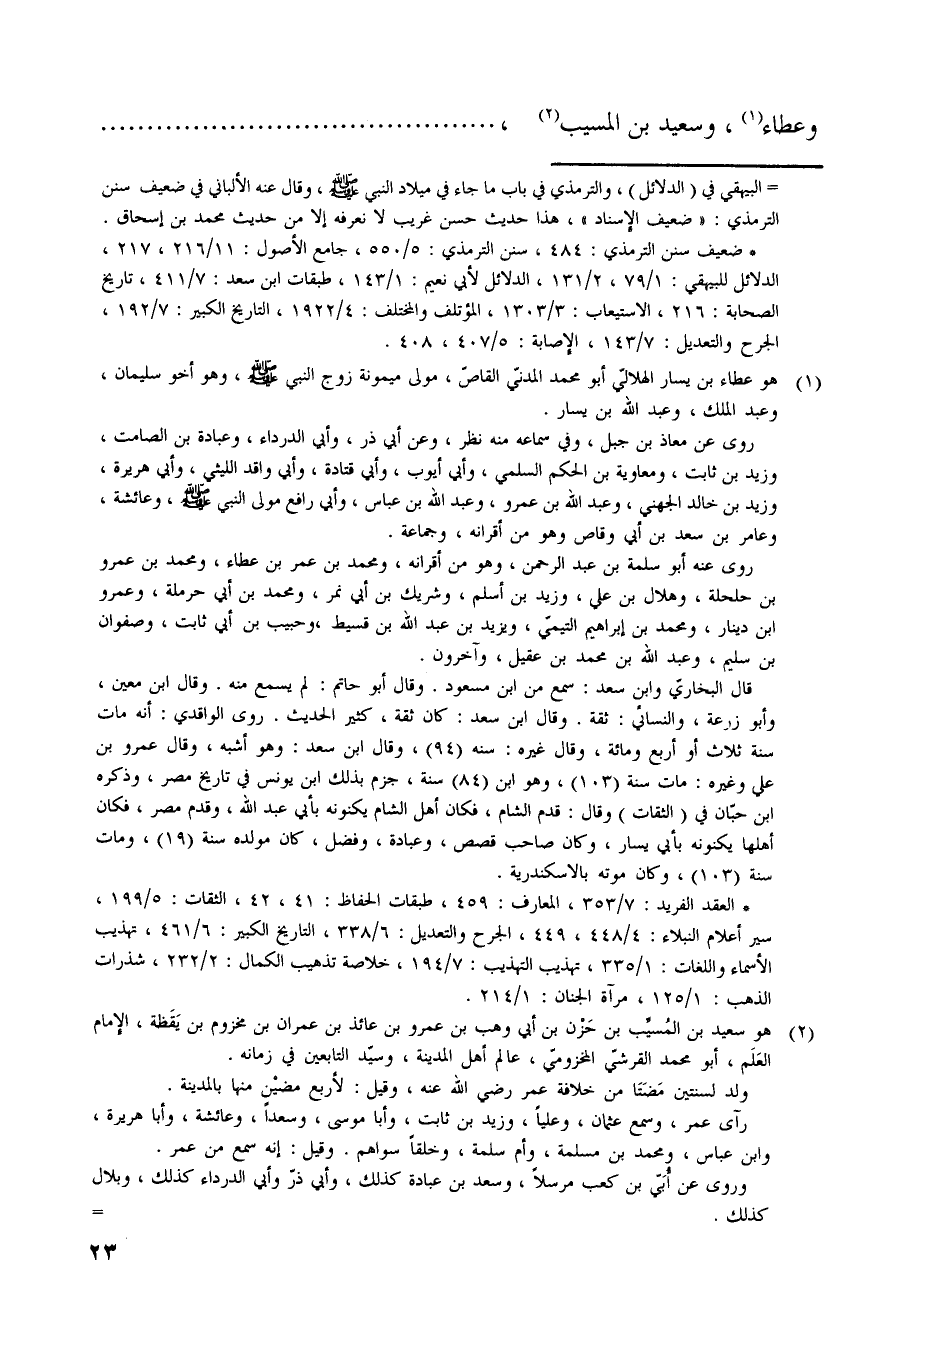 وعطاء(١) ، وسعيد بن المسيب(٢) ، ..........................................
= البيهقي في ( الدلائل ) ، والترمذي في باب ما جاء في ميلاد النبي ﷺ ، وقال عنه الألباني في ضعيف سنن
الترمذي : « ضعيف الإسناد » ، هذا حديث حسن غريب لا نعرفه إلا من حديث محمد بن إسحاق .
* ضعيف سنن الترمذي : ٤٨٤ ، سنن الترمذي : ٥٥٠/٥ ، جامع الأصول : ٢١٦/١١ ، ٢١٧ ،
الدلائل للبيهقي : ٧٩/١ ، ١٣١/٢ ، الدلائل لأبي نعيم : ١٤٣/١ ، طبقات ابن سعد : ٤١١/٧ ، تاريخ
الصحابة : ٢١٦ ، الاستيعاب : ١٣٠٣/٣ ، المؤتلف والمختلف : ١٩٢٢/٤ ، التاريخ الكبير : ١٩٢/٧ ،
الجرح والتعديل : ١٤٣/٧ ، الإصابة : ٤٠٧/٥ ، ٤٠٨ .
(١) هو عطاء بن يسار الهلاليّ أبو محمد المدنيّ القاصّ ، مولى ميمونة زوج النبي ﷺ ، وهو أخو سليمان ،
وعبد الملك ، وعبد الله بن يسار .
روى عن معاذ بن جبل ، وفي سماعه منه نظر ، وعن أبي ذر ، وأبي الدرداء ، وعبادة بن الصامت ،
وزيد بن ثابت ، ومعاوية بن الحكم السلمي ، وأبي أيوب ، وأبي قتادة ، وأبي واقد الليثي ، وأبي هريرة ،
وزيد بن خالد الجهني ، وعبد الله بن عمرو ، وعبد الله بن عباس ، وأبي رافع مولى النبي ﷺ ، وعائشة ،
وعامر بن سعد بن أبي وقاص وهو من أقرانه ، وجماعة .
روى عنه أبو سلمة بن عبد الرحمن ، وهو من أقرانه ، ومحمد بن عمر بن عطاء ، ومحمد بن عمرو
بن حلحلة ، وهلال بن علي ، وزيد بن أسلم ، وشريك بن أبي نمر ، ومحمد بن أبي حرملة ، وعمرو
ابن دينار ، ومحمد بن إبراهيم التيميّ ، ويزيد بن عبد الله بن قسيط ،وحبيب بن أبي ثابت ، وصفوان
بن سليم ، وعبد الله بن محمد بن عقيل ، وآخرون .
قال البخاريّ وابن سعد : سمع من ابن مسعود . وقال أبو حاتم : لم يسمع منه . وقال ابن معين ،
وأبو زرعة ، والنسائيّ : ثقة . وقال ابن سعد : كان ثقة ، كثير الحديث . روى الواقدي : أنه مات
سنة ثلاث أو أربع ومائة ، وقال غيره : سنه (٩٤) ، وقال ابن سعد : وهو أشبه ، وقال عمرو بن
علي وغيره : مات سنة (١٠٣) ، وهو ابن (٨٤) سنة ، جزم بذلك ابن يونس في تاريخ مصر ، وذكره
ابن حبّان في ( الثقات ) وقال : قدم الشام ، فكان أهل الشام يكنونه بأبي عبد الله ، وقدم مصر ، فكان
أهلها يكنونه بأبي يسار ، وكان صاحب قصص ، وعبادة ، وفضل ، كان مولده سنة (١٩) ، ومات
سنة (١٠٣) ، وكان موته بالاسكندرية .
* العقد الفريد : ٣٥٣/٧ ، المعارف : ٤٥٩ ، طبقات الحفاظ : ٤١ ، ٤٢ ، الثقات : ١٩٩/٥ ،
سير أعلام النبلاء : ٤٤٨/٤ ، ٤٤٩ ، الجرح والتعديل : ٣٣٨/٦ ، التاريخ الكبير : ٤٦١/٦ ، تهذيب
الأسماء واللغات : ٣٣٥/١ ، تهذيب التهذيب : ١٩٤/٧ ، خلاصة تذهيب الكمال : ٢٣٢/٢ ، شذرات
الذهب : ١٢٥/١ ، مرآة الجنان : ٢١٤/١ .
(٢) هو سعيد بن المُسيِّب بن حَزْن بن أبي وهب بن عمرو بن عائذ بن عمران بن مخزوم بن يَقَظة ، الإمام
العَلَم ، أبو محمد القرشيّ المخزوميّ ، عالم أهل المدينة ، وسيّد التابعين في زمانه .
ولد لسنتين مَضَتَا من خلافة عمر رضي الله عنه ، وقيل : لأربع مضيْن منها بالمدينة .
رآى عمر ، وسمع عثمان ، وعلياً ، وزيد بن ثابت ، وأبا موسى ، وسعداً ، وعائشة ، وأبا هريرة ،
وابن عباس ، ومحمد بن مسلمة ، وأم سلمة ، وخلقاً سواهم . وقيل : إنه سمع من عمر .
وروى عن أُبَيّ بن كعب مرسلاً ، وسعد بن عبادة كذلك ، وأبي ذرّ وأبي الدرداء كذلك ، وبلال
كذلك . =
٢٣